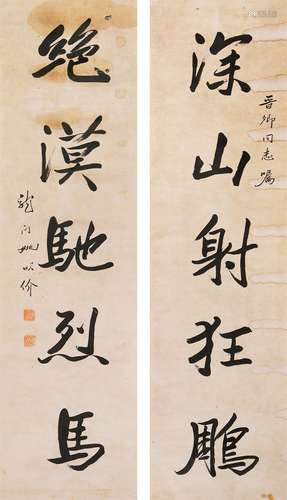 深山射狂鵰
晋卿同志嘱
絶漠馳烈馬
龍門姚以价